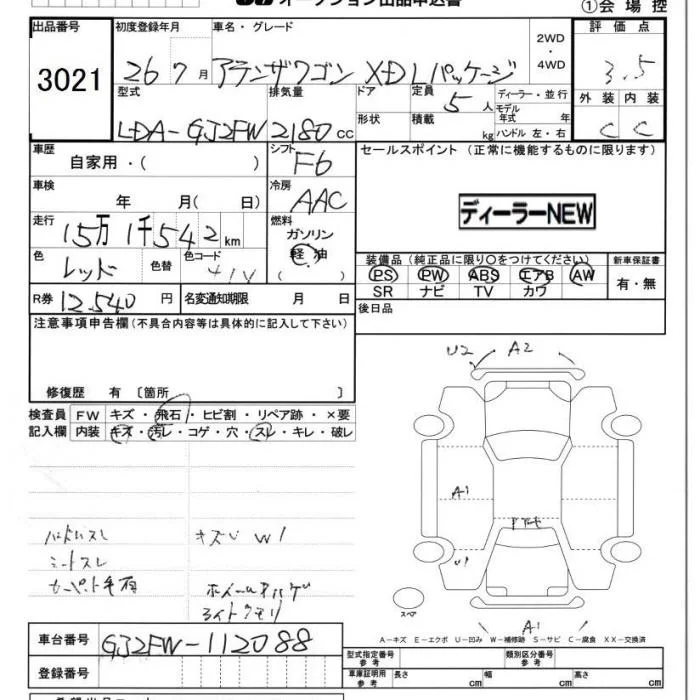 オークション出品申込書 ①会場控
出品番号 3021
初度登録年月 26 7月
車名・グレード アテンザワゴン XD Lパッケージ
2WD・4WD
評価点 3.5
外装 C 内装 C
型式 LDA-GJ2FW
排気量 2180cc
ドア形状
定員 5人
積載 kg
ディーラー・並行
モデル年式 年
ハンドル 左・右
車歴 自家用・( )
シフト F6
セールスポイント (正常に機能するものに限ります)
車検 年 月( 日)
冷房 AAC
ディーラーNEW
走行 15万1千542km
燃料 ガソリン 軽油 ( )
色 レッド 色替 色コード 41V
装備品 (純正品に限り○をつけてください) 新車保証書
PS PW ABS エアB AW
SR ナビ TV カワ
有・無
R券 12,540円 名変通知期限 月 日
後日品
注意事項申告欄 (不具合内容等は具体的に記入して下さい)
U2 A2
修復歴 有 〔箇所 〕
検査員 FW キズ・飛石・ヒビ割・リペア跡・×要
記入欄 内装 キズ・汚レ・コゲ・穴・スレ・キレ・破レ
A1
ハンドルスレ キズ W1
シートスレ
U1
ホイールキハゲ
ライトクモリ
スペア
A1
A-キズ E-エクボ U-凹み W-補修跡 S-サビ C-腐食 XX-交換済
車台番号 GJ2FW-112088
型式指定番号 参考 類別区分番号 参考
登録番号
車庫証明用 参考 長さ cm 幅 cm 高さ cm